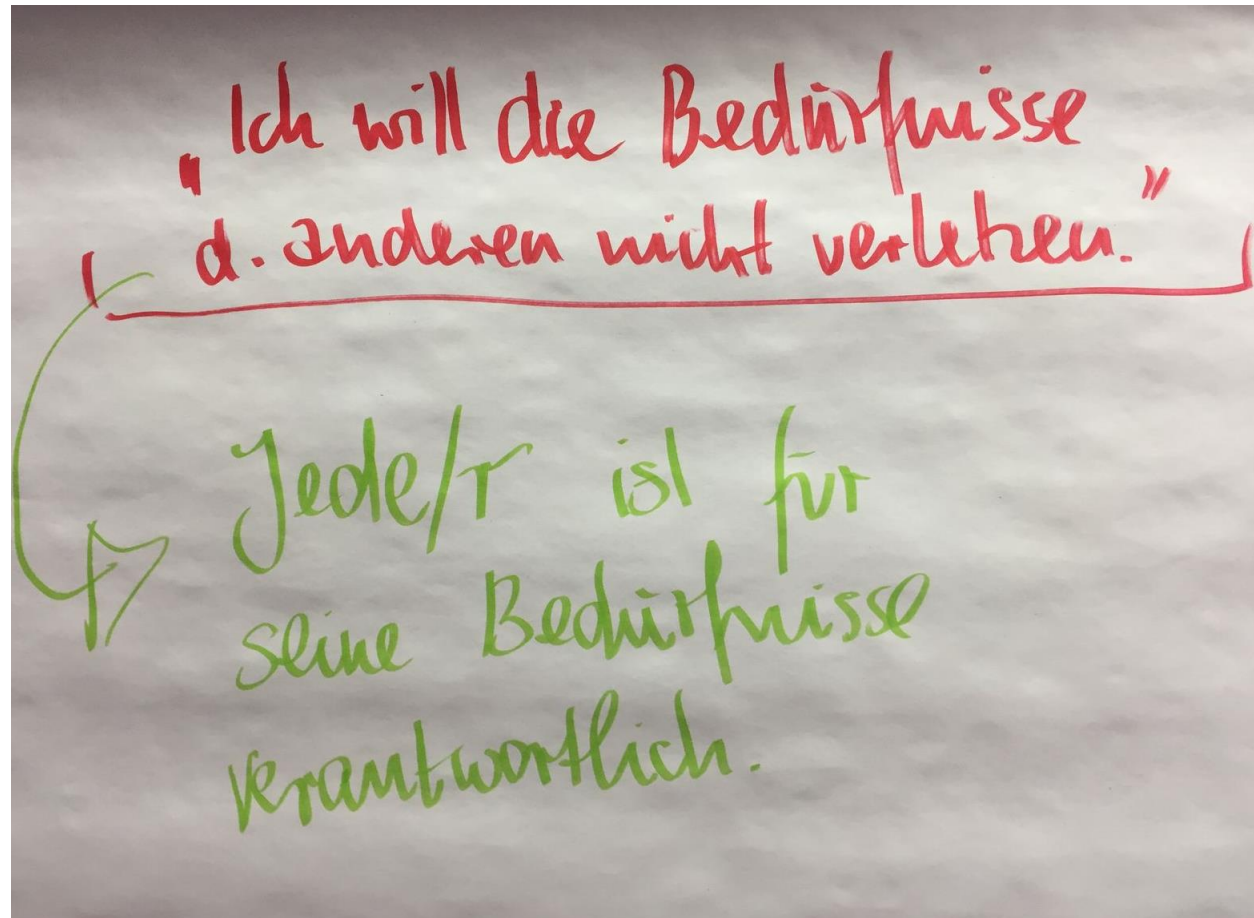 „Ich will die Bedürfnisse
d. anderen nicht verletzen."
Jede/r ist für
seine Bedürfnisse
verantwortlich.